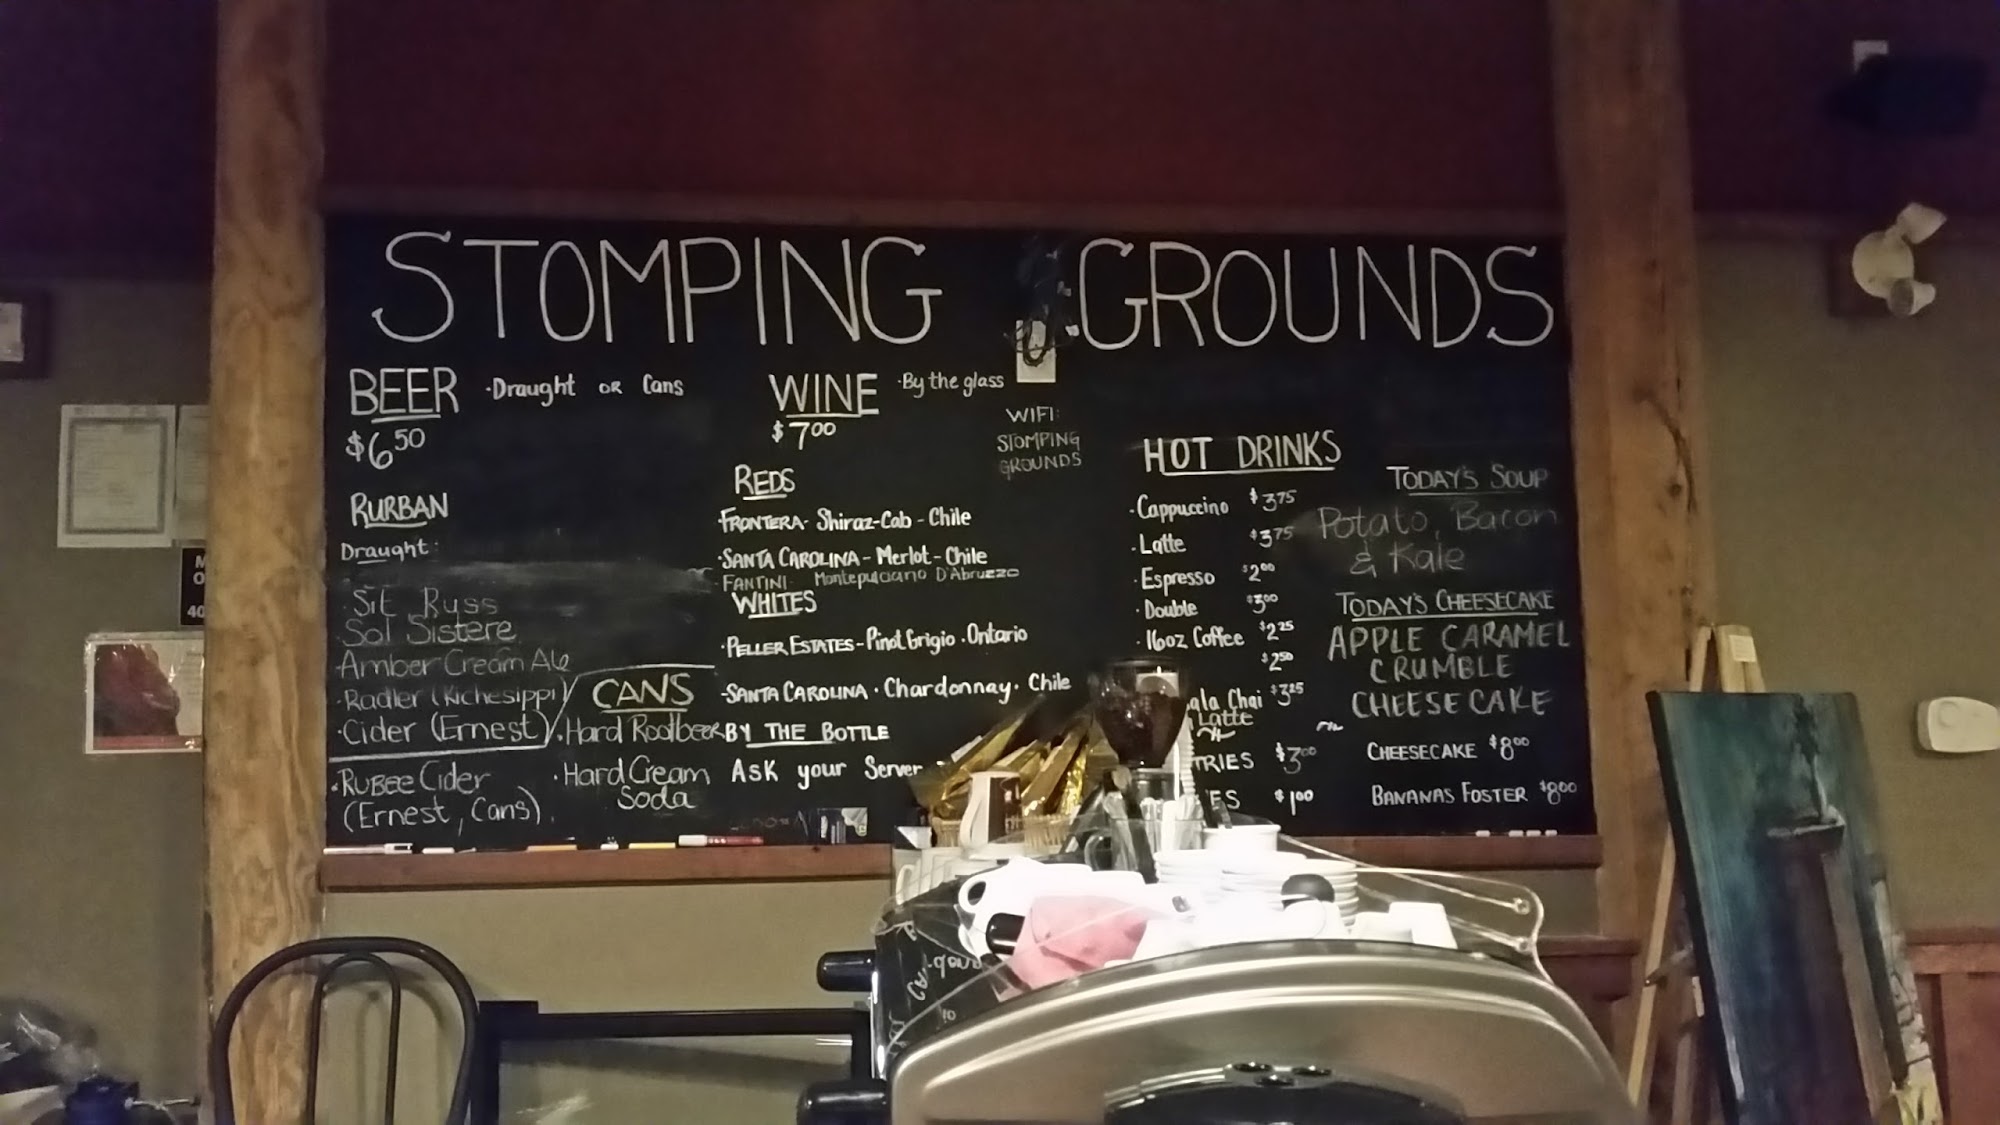 STOMPING GROUNDS
BEER · Draught or Cans
$6.50
RURBAN
Draught:
· Sit Russ
Sol Sistere
· Amber Cream Ale
· Radler (Kichesippi)
· Cider (Ernest)
· RUBEE Cider
(Ernest, Cans).
CANS
· Hard Rootbeer
· Hard Cream
Soda
WINE · By the glass
$7.00
REDS
· FRONTERA - Shiraz-Cab - Chile
· SANTA CAROLINA - Merlot - Chile
· FANTINI Montepulciano D'Abruzzo
WHITES
· PELLER ESTATES - Pinot Grigio · Ontario
- SANTA CAROLINA · Chardonnay · Chile
BY THE BOTTLE
ASK your Server
WIFI:
STOMPING
GROUNDS
HOT DRINKS
· Cappuccino $3.75
· Latte $3.75
· Espresso $2.00
· Double $3.00
· 16oz Coffee $2.25
$2.50
ala Chai $3.25
Latte
TRIES $3.00
ES $1.00
TODAY'S SOUP
Potato, Bacon
& Kale
TODAY'S CHEESECAKE
APPLE CARAMEL
CRUMBLE
CHEESECAKE
CHEESECAKE $8.00
BANANAS FOSTER $8.00